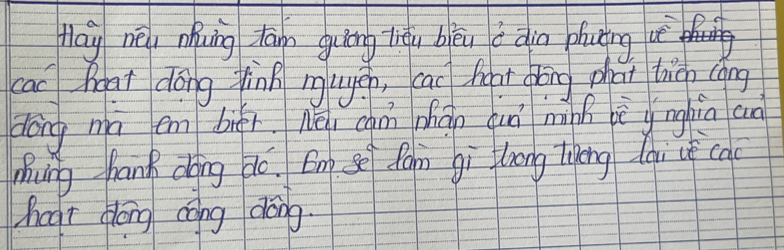 Hãy nêu những tấm gương tiêu biểu ở địa phương về
các hoạt động tình nguyện, các hoạt động phát triển cộng
đồng mà em biết. Nêu cảm nhận của mình về ý nghĩa của
những hành động đó. Em sẽ làm gì trong tương lai về các
hoạt động cộng đồng.